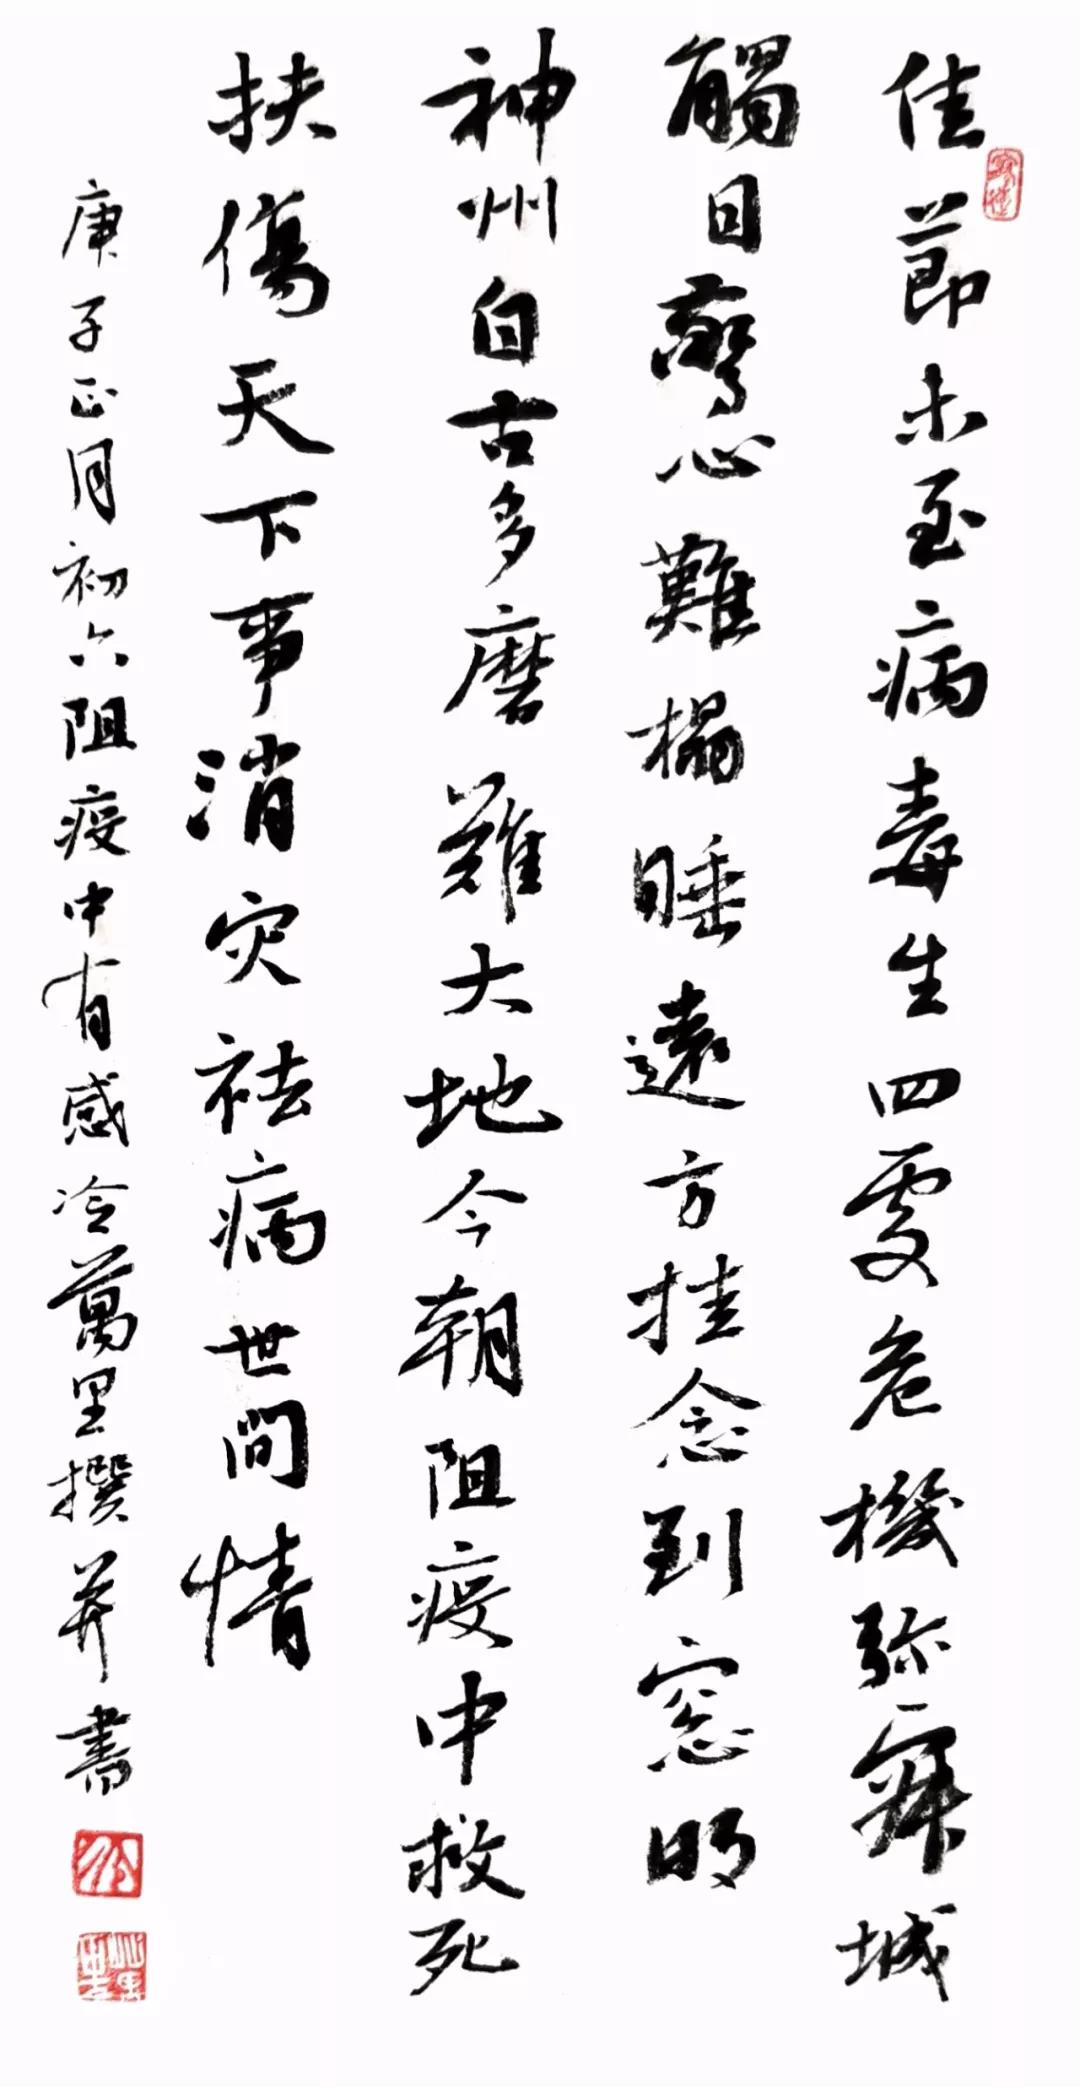 佳節未至病毒生四處危機弥舜城
觸目驚心難榻睡遠方挂念到窓明
神州自古多磨難大地今朝阻疫中救死
扶傷天下事消灾祛病世間情
庚子正月初六阻疫中有感冷萬里撰并書